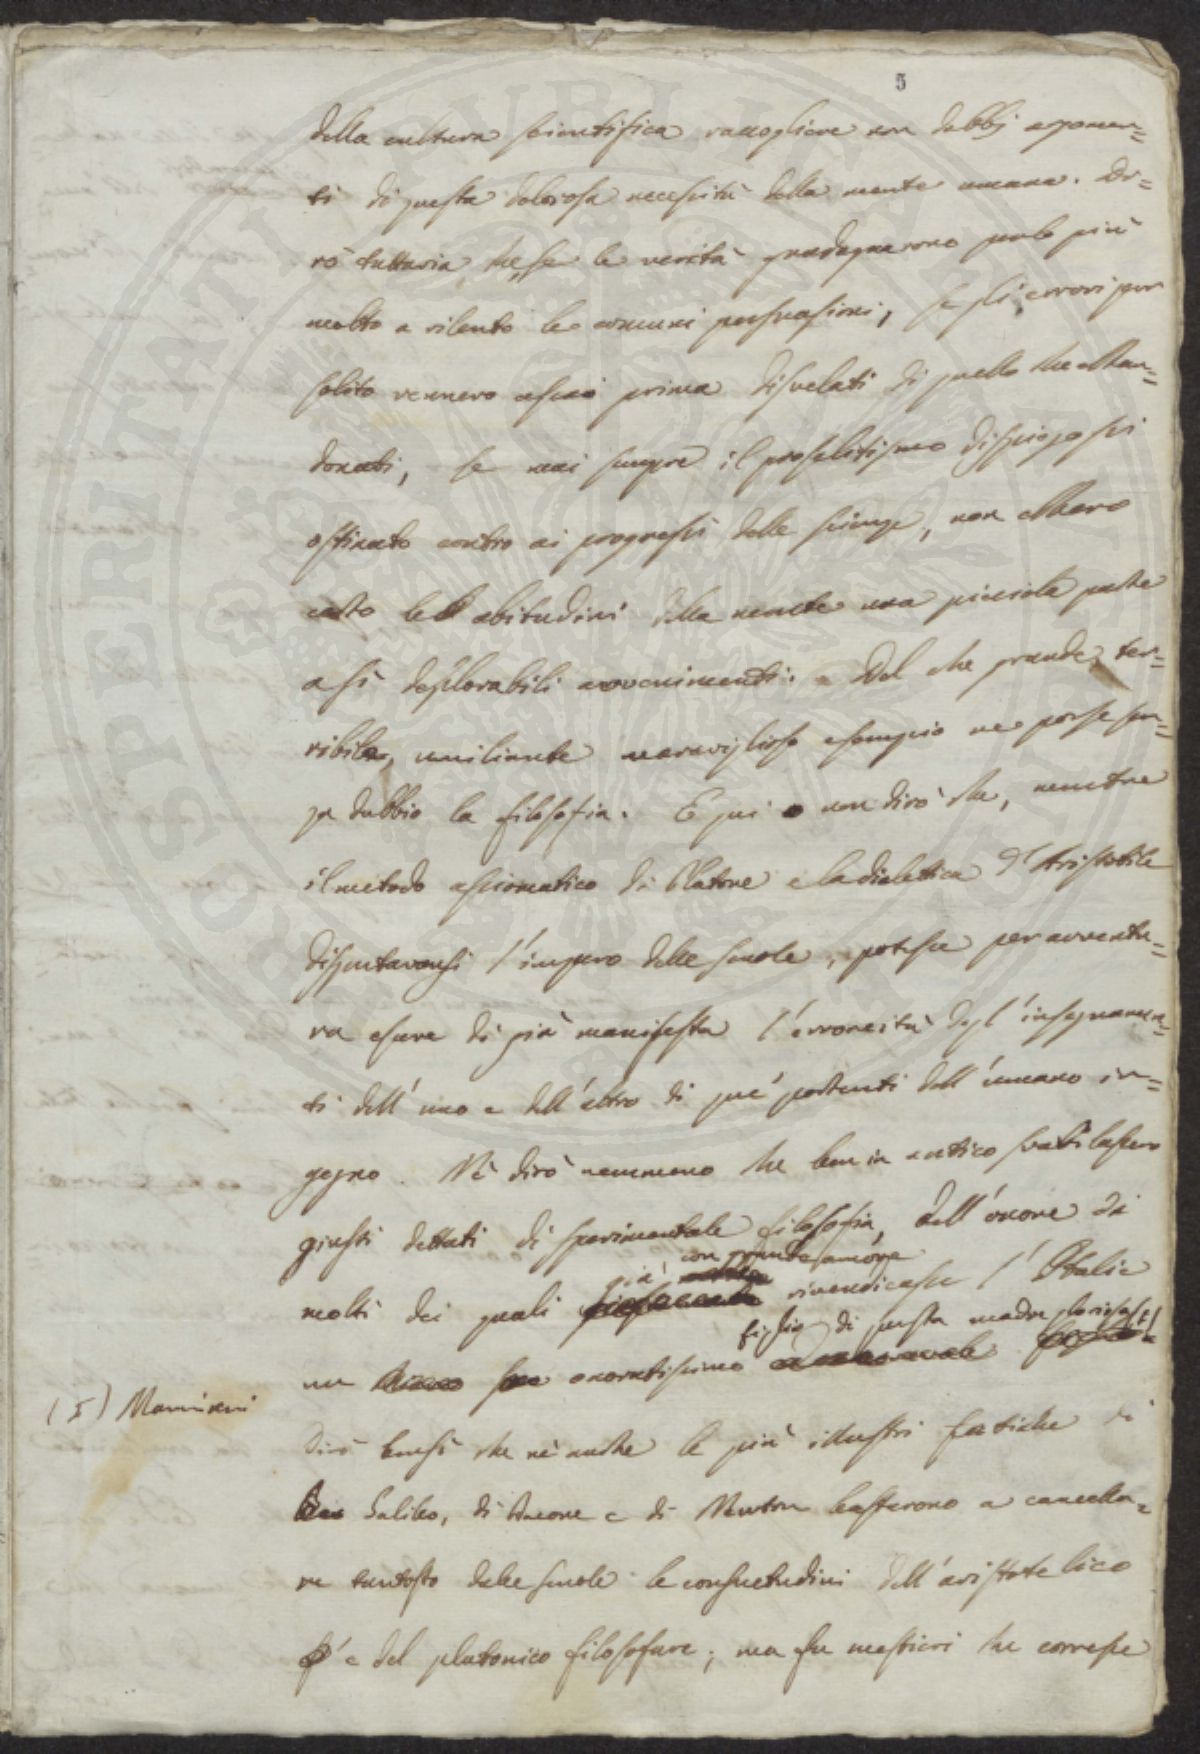 5
della cultura scientifica raccogliere non debbj argomen=
ti di questa dolorosa necessità della mente umana. Di=
rò tuttavia, che se le verità guadagnarono pur le più
molto a rilento le comuni persuasioni, se gli errori per
solito vennero assai prima disvelati di quello che abban=
donati, se mai sempre il proselitismo dispiegossi
ostinato contro ai progressi delle scienze, non ebbero
certo le abitudini della mente una picciola parte
a sì deplorabili avvenimenti. Del che grande, ter=
ribile, umiliante maraviglioso esempio ne porse sen=
za dubbio la filosofia. E qui non dirò che, mentre
il metodo assiomatico di Platone e la dialetica d'Aristotile
disputavansi l'impero delle scuole, potesse per avventu=
ra essere di già manifesta l'erroneità degl'insegnamen=
ti dell'uno e dell'altro di que' portenti dell'umano in=
gegno. Nè dirò nemmeno che ben in antico
giusti dettati di sperimentale filosofia, dell'onore di
già con grande amore
molti dei quali rivendicasse l'Italia
figlio di questa madre gloriosa (1)
un onoratissimo
(1) Mamiani
dirò bensì che nè anche le più illustri fatiche di
Galileo, di Bacone e di Newton bastarono a cancella=
re tantosto dalle scuole le consuetudini dell'aristotelico
e del platonico filosofare; ma fu mestieri che corresse